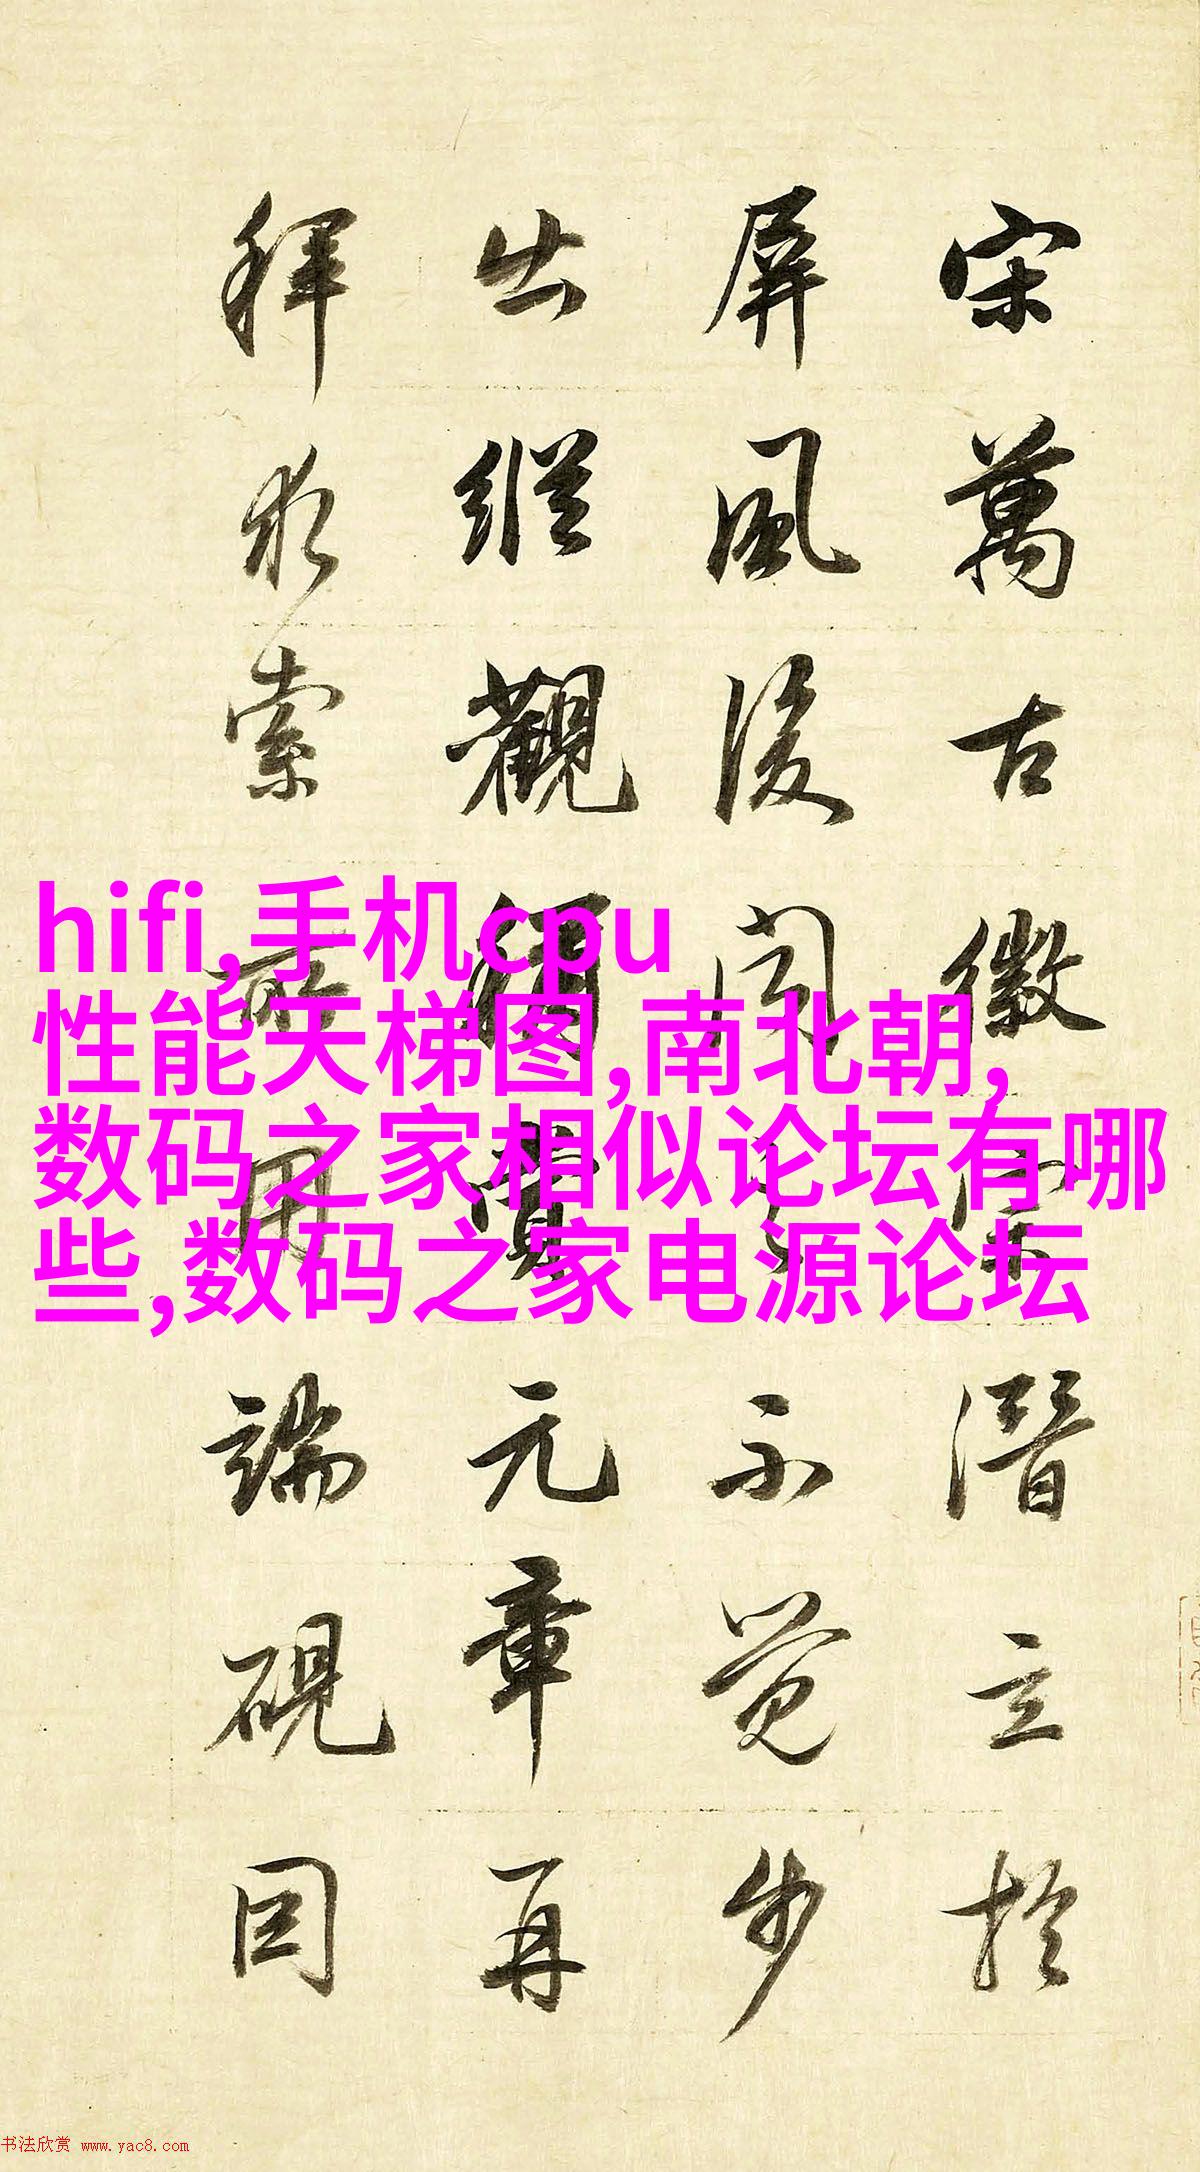 宋萬古徽宗潛立於
屏風後聞之不覺步
出縱觀稱賞元章再
拜求索所用端硯因
hifi,手机cpu
性能天梯图,南北朝,
数码之家相似论坛有哪
些,数码之家电源论坛
书法欣赏 www.yac8.com